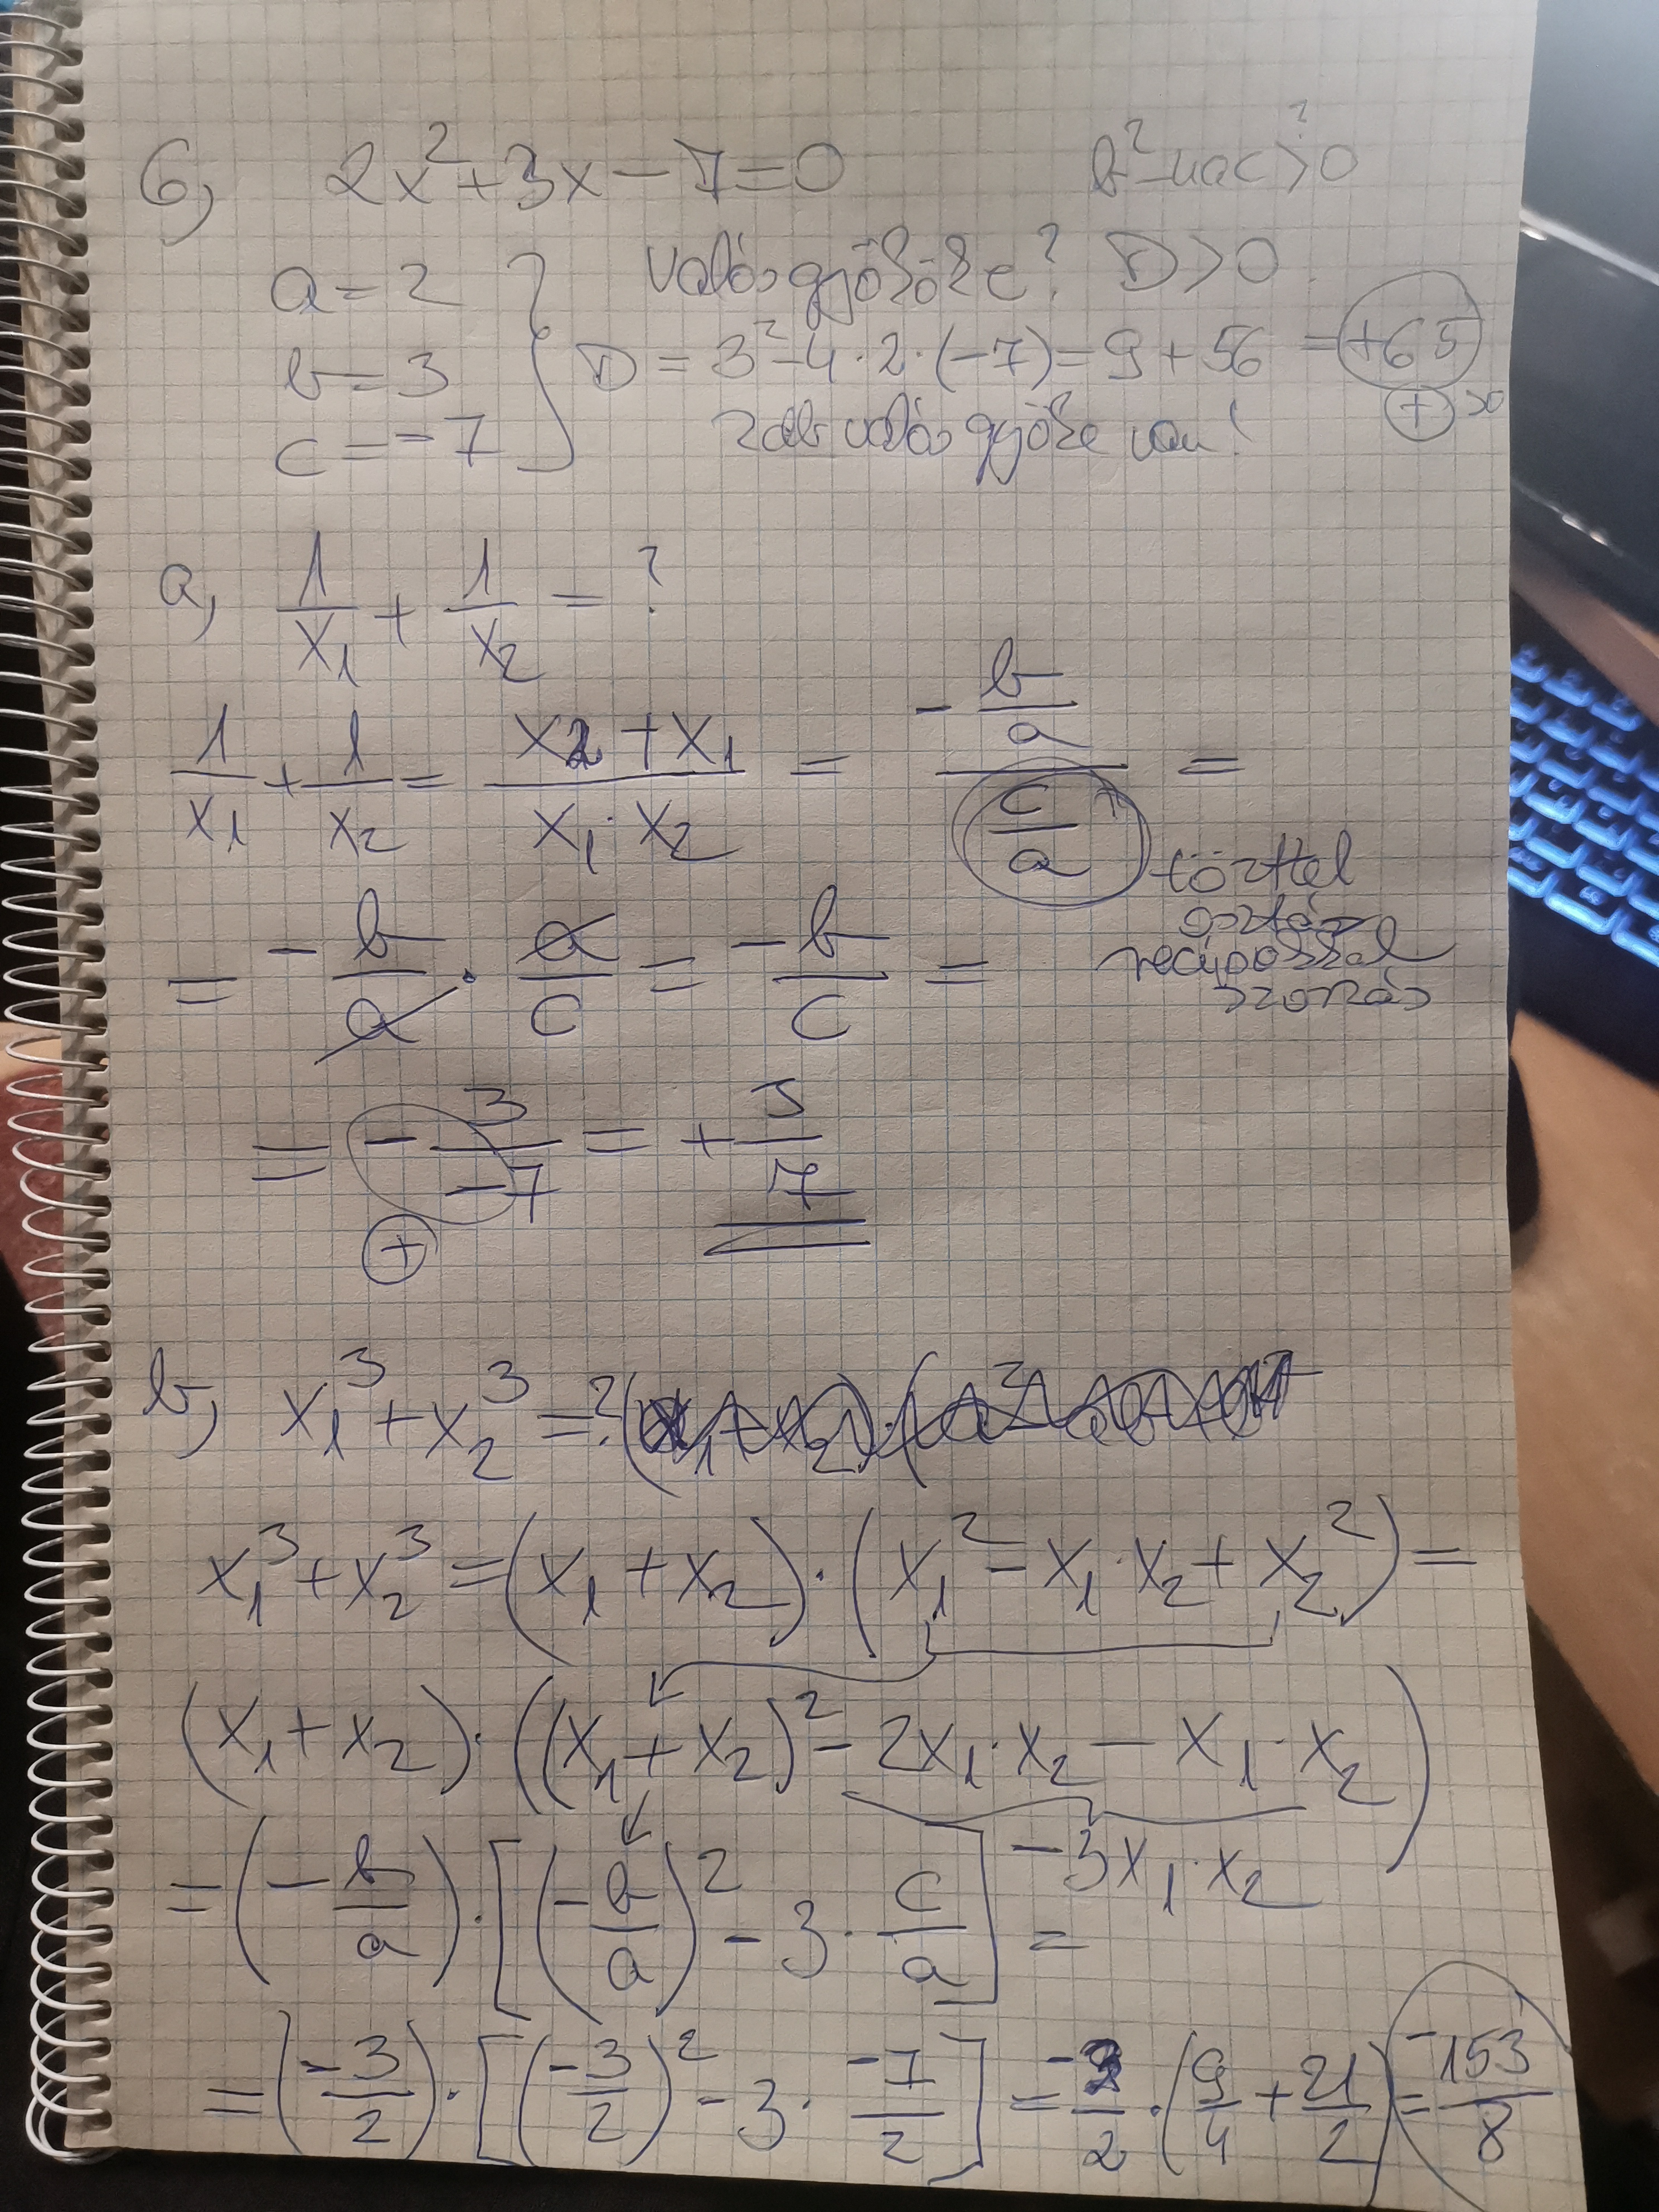 6, 2x²+3x-7=0 b²-4ac>0 ?
a=2 valós gyököke? D>0
b=3 D = 3²-4·2·(-7)=9+56 = +65
c=-7 2db valós gyöke van! + >0
a, 1/x₁ + 1/x₂ = ?
1/x₁ + 1/x₂ = (x₂+x₁)/(x₁·x₂) = (-b/a)/(c/a) =
törttel
osztás
= -b/a · a/c = -b/c =
szorzás
= -3/-7 = +3/7
+
b, x₁³+x₂³=?
x₁³+x₂³=(x₁+x₂)·(x₁²-x₁·x₂+x₂²)=
(x₁+x₂)·((x₁+x₂)²-2x₁·x₂-x₁·x₂)
-3x₁·x₂
=(-b/a)·[(-b/a)²-3·c/a]=
=(-3/2)·[(-3/2)²-3·-7/2]=-3/2·(9/4+21/2)=-153/8